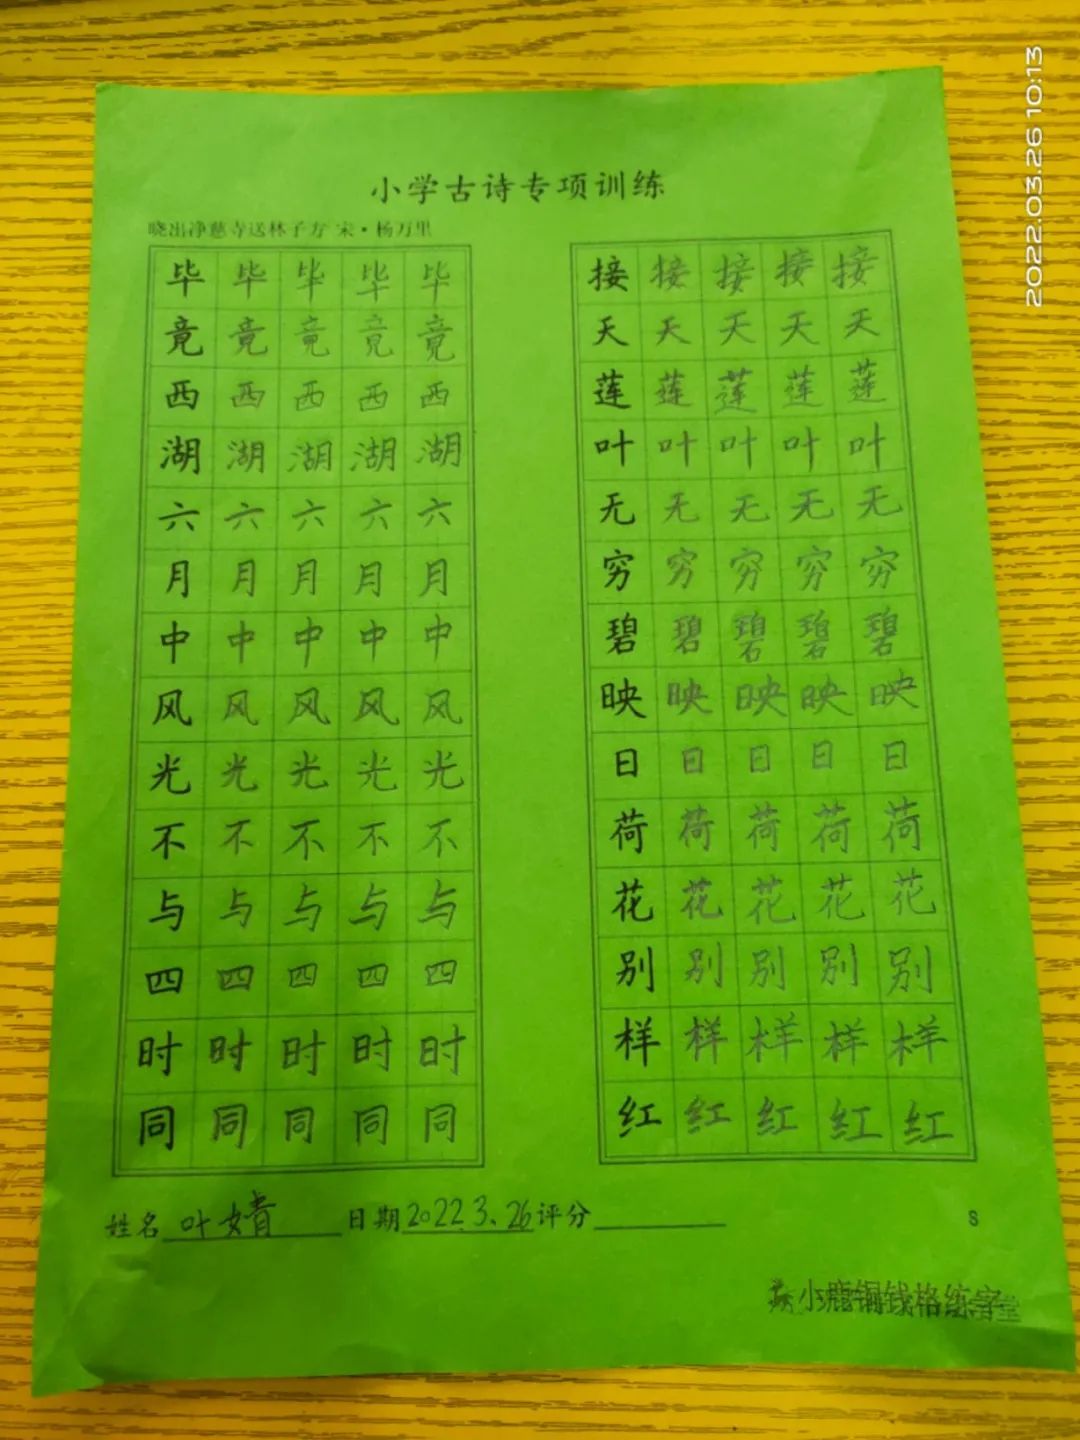 2022.03.26 10:13
小学古诗专项训练
晓出净慈寺送林子方 宋·杨万里
毕 毕 毕 毕 毕
竟 竟 竟 竟 竟
西 西 西 西 西
湖 湖 湖 湖 湖
六 六 六 六 六
月 月 月 月 月
中 中 中 中 中
风 风 风 风 风
光 光 光 光 光
不 不 不 不 不
与 与 与 与 与
四 四 四 四 四
时 时 时 时 时
同 同 同 同 同
接 接 接 接 接
天 天 天 天 天
莲 莲 莲 莲 莲
叶 叶 叶 叶 叶
无 无 无 无 无
穷 穷 穷 穷 穷
碧 碧 碧 碧 碧
映 映 映 映 映
日 日 日 日 日
荷 荷 荷 荷 荷
花 花 花 花 花
别 别 别 别 别
样 样 样 样 样
红 红 红 红 红
姓名 叶婧 日期 2022.3.26 评分
小鹿铜钱格练字